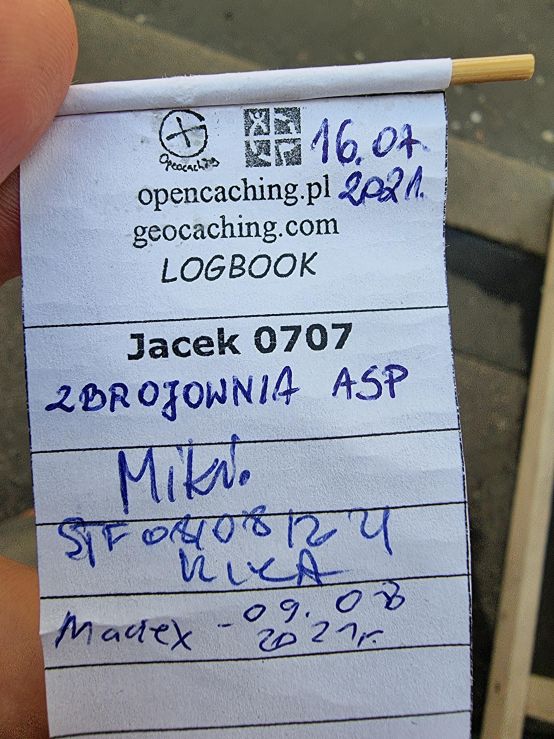 Opencaching
16.07.
opencaching.pl 2021.
geocaching.com
LOGBOOK
Jacek 0707
ZBROJOWNIA ASP
Miki.
Madex - 09.08
2021r.